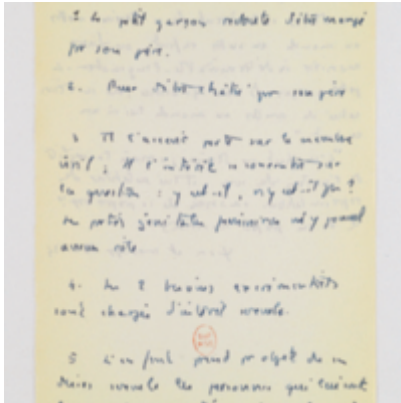 1. Le petit garçon redoute d'être mangé
par son père.
2. Peur d'être châtié par son père
3. Il s'accent porté sur le membre
viril ; Il l'intérêt se concentre sur
la question : y est-il, n'y est-il pas ?
les parties génitales féminines n'y jouent
aucun rôle
4. Les 2 besoins excrémentiels
sont chargés d'intérêt sexuels.
5. L'enfant prend pr objet de ses
désirs sexuels les personnes qui